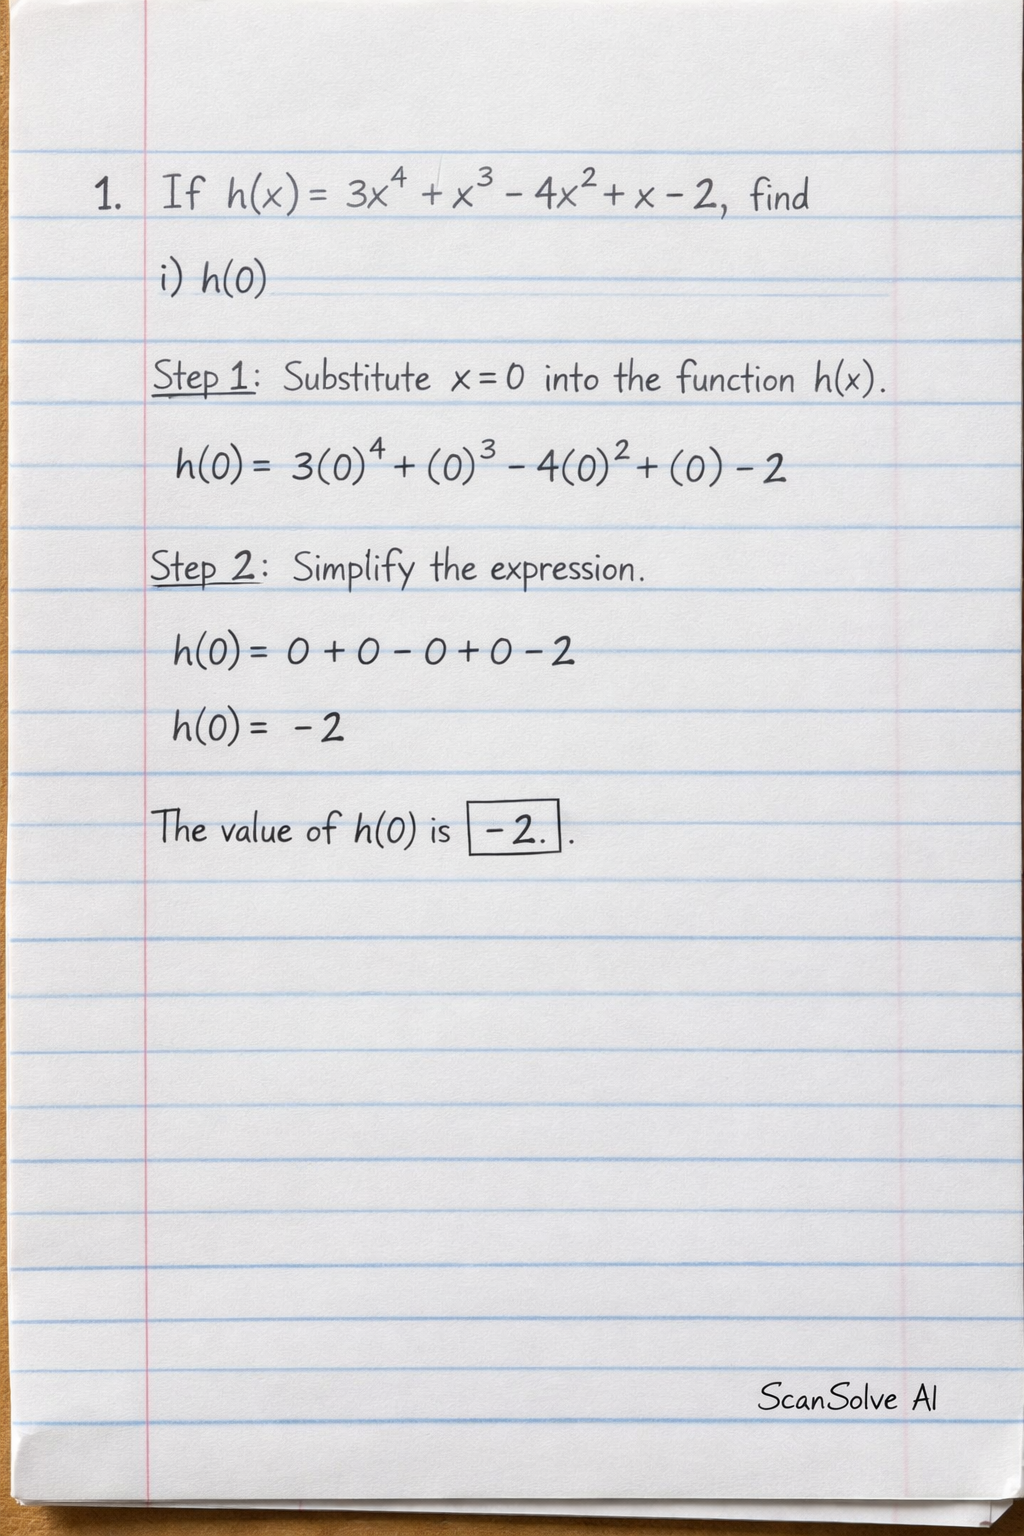 1. If h(x) = 3x⁴ + x³ - 4x² + x - 2, find
i) h(0)
Step 1: Substitute x = 0 into the function h(x).
h(0) = 3(0)⁴ + (0)³ - 4(0)² + (0) - 2
Step 2: Simplify the expression.
h(0) = 0 + 0 - 0 + 0 - 2
h(0) = -2
The value of h(0) is -2. .
ScanSolve AI